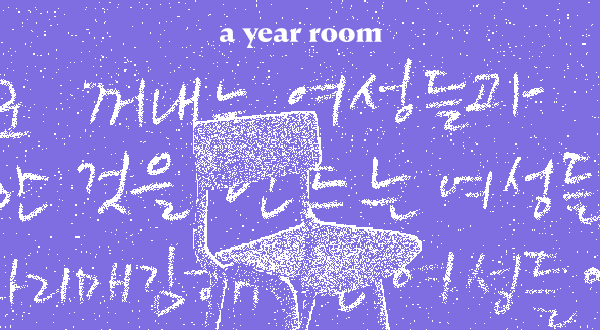 a year room
꺼내는 여성들과
것을 만드는 여성들
자리매김하 여성들